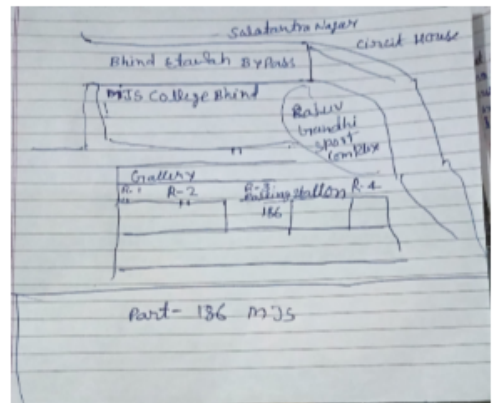 Salatantra Nagar
Circit House
Bhind Etawah By Pass
MJS College Bhind
Rajuv
Gandhi
Sport
Complex
Gallery
R-1 R-2 R-3 R-4
Polling Station
186
Part- 186 MJS